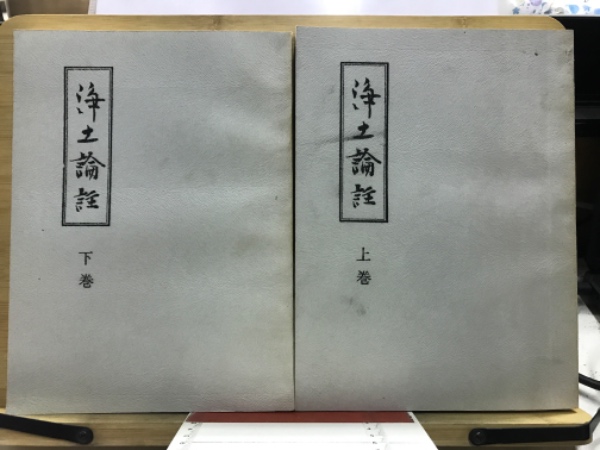 浄土論註
上巻
浄土論註
下巻